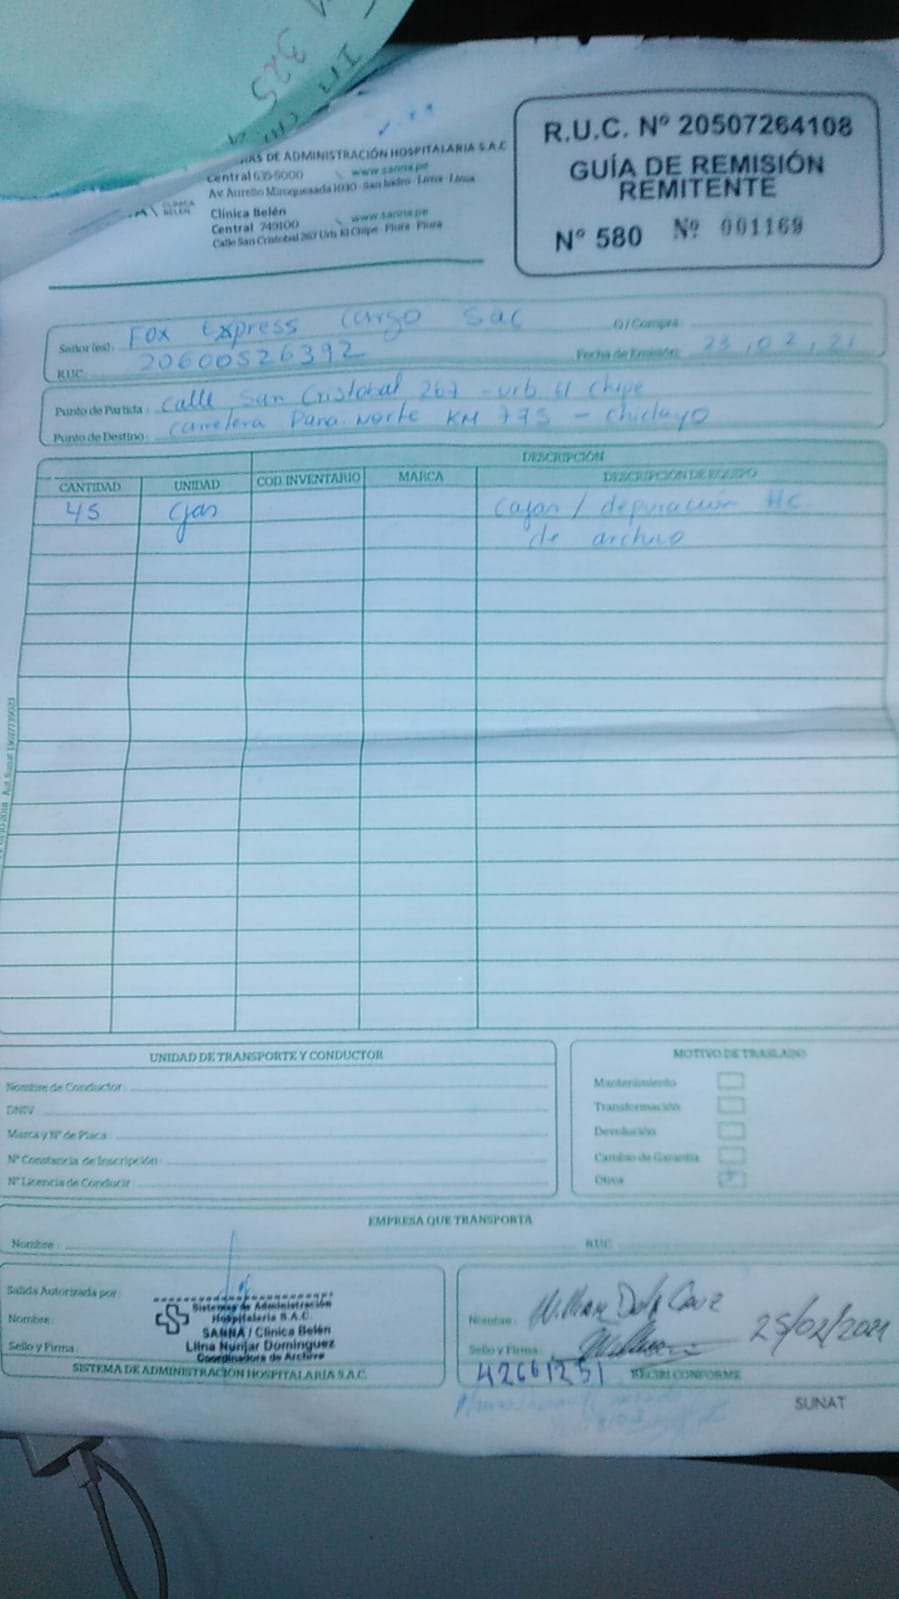 325
R.U.C. Nº 20507264108
GUÍA DE REMISIÓN
REMITENTE
Nº 580 Nº 001169
DE ADMINISTRACIÓN HOSPITALARIA S.A.C
Central 635-5000 www.sanna.pe
Av. Aurelio Miroquesada 1030 - San Isidro - Lima - Lima
CLÍNICA BELÉN
Clínica Belén
Central 749100 www.sanna.pe
Calle San Cristobal 267 Urb. El Chipe - Piura - Piura
Señor (es): Fox Express Cargo Sac O / Compra:
RUC: 20600526392 Fecha de Emisión: 23, 02, 21
Punto de Partida: Calle San Cristobal 267 - urb El Chipe
Punto de Destino: Carretera Pana. Norte KM 775 - Chiclayo
DESCRIPCIÓN
CANTIDAD UNIDAD COD. INVENTARIO MARCA DESCRIPCIÓN DE EQUIPO
45 Cjas Cajas / depuración HC
de archivo
UNIDAD DE TRANSPORTE Y CONDUCTOR
Nombre de Conductor:
DNI:
Marca y Nº de Placa:
Nº Constancia de Inscripción:
Nº Licencia de Conducir:
MOTIVO DE TRASLADO
Mantenimiento
Transformación
Devolución
Cambio de Garantía
Otros
EMPRESA QUE TRANSPORTA
Nombre: RUC:
Salida Autorizada por:
Nombre:
Sello y Firma:
Sistemas de Administración
Hospitalaria S.A.C.
SANNA / Clínica Belén
Lilna Nunjar Domínguez
Coordinadora de Archivo
SISTEMA DE ADMINISTRACIÓN HOSPITALARIA S.A.C.
Nombre: William Dela Cruz
Sello y Firma: 25/02/2021
42661251 RECIBI CONFORME
SUNAT